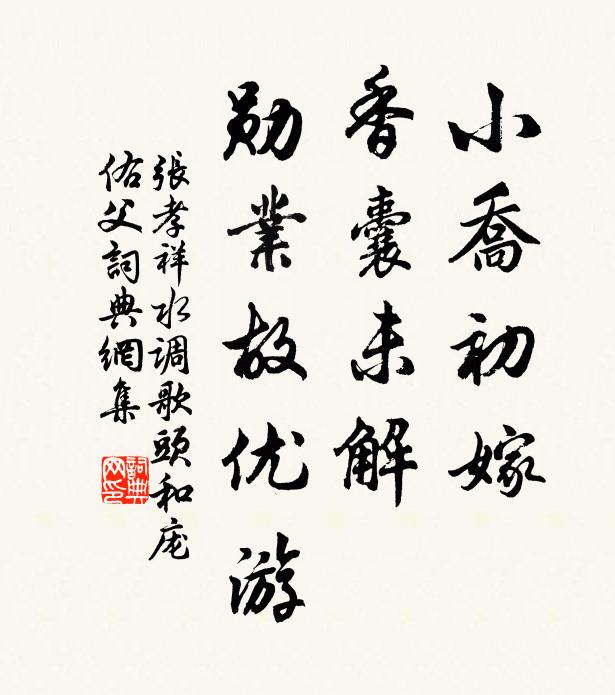 小喬初嫁
香囊未解
勋業故优游
張孝祥水调歌頭和庞
佑父詞典網集
詞典网印